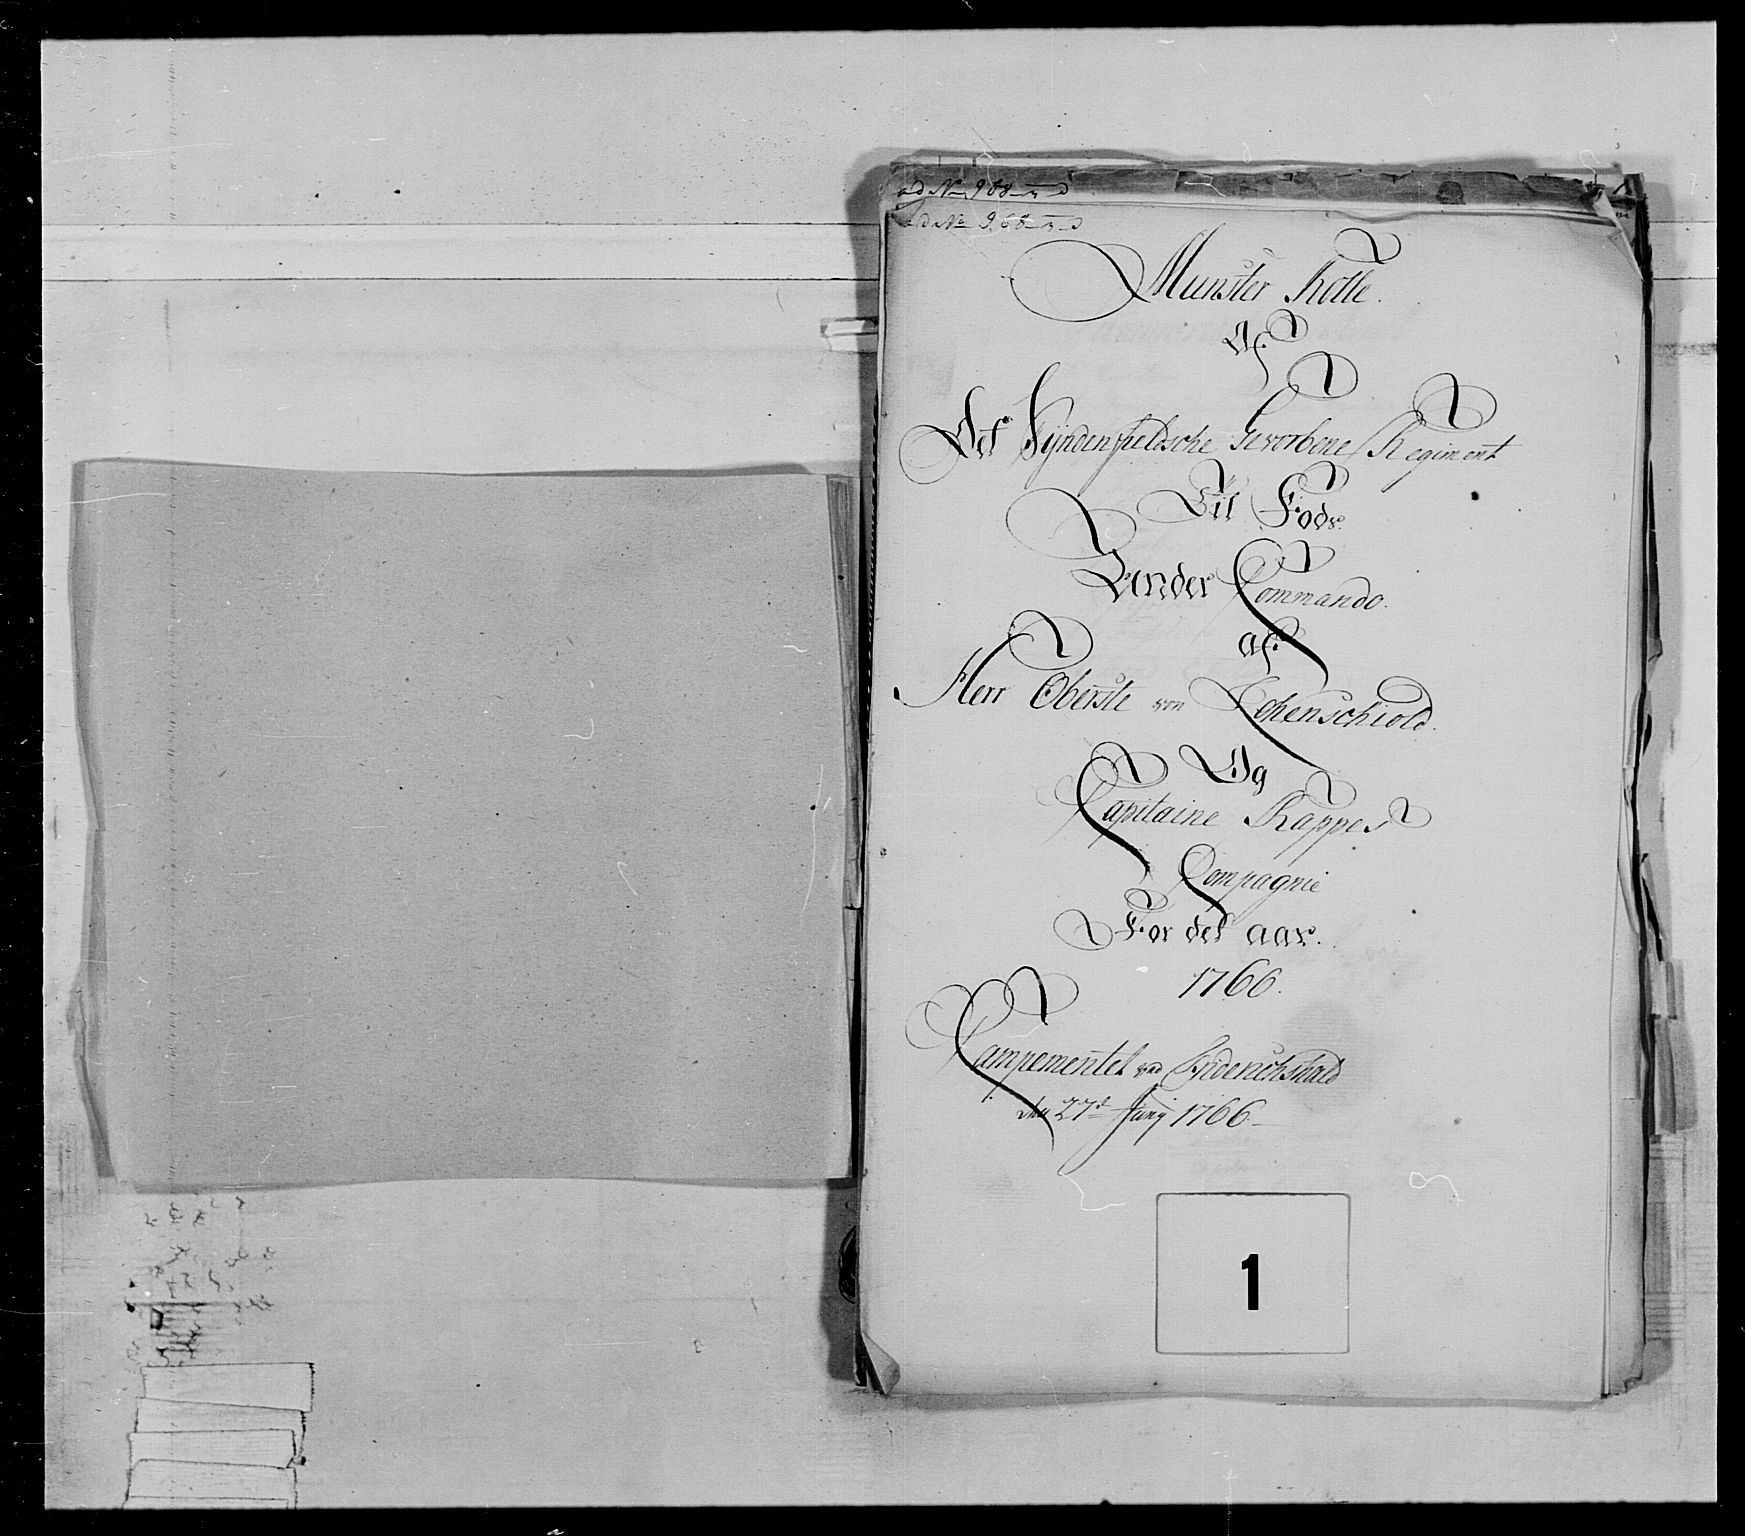 ad No 968
ad No 968
Munster Rolle.
Af
Det Syndenfieldsche Gevorbene Regiment
Til Fods.
Under Commando.
af
Herr Oberste von Lehenschiold.
Og
Capitaine Rappes
Compagnie
For det aar.
1766.
Campementet ved Friderichshald
den 27d Junÿ 1766
1